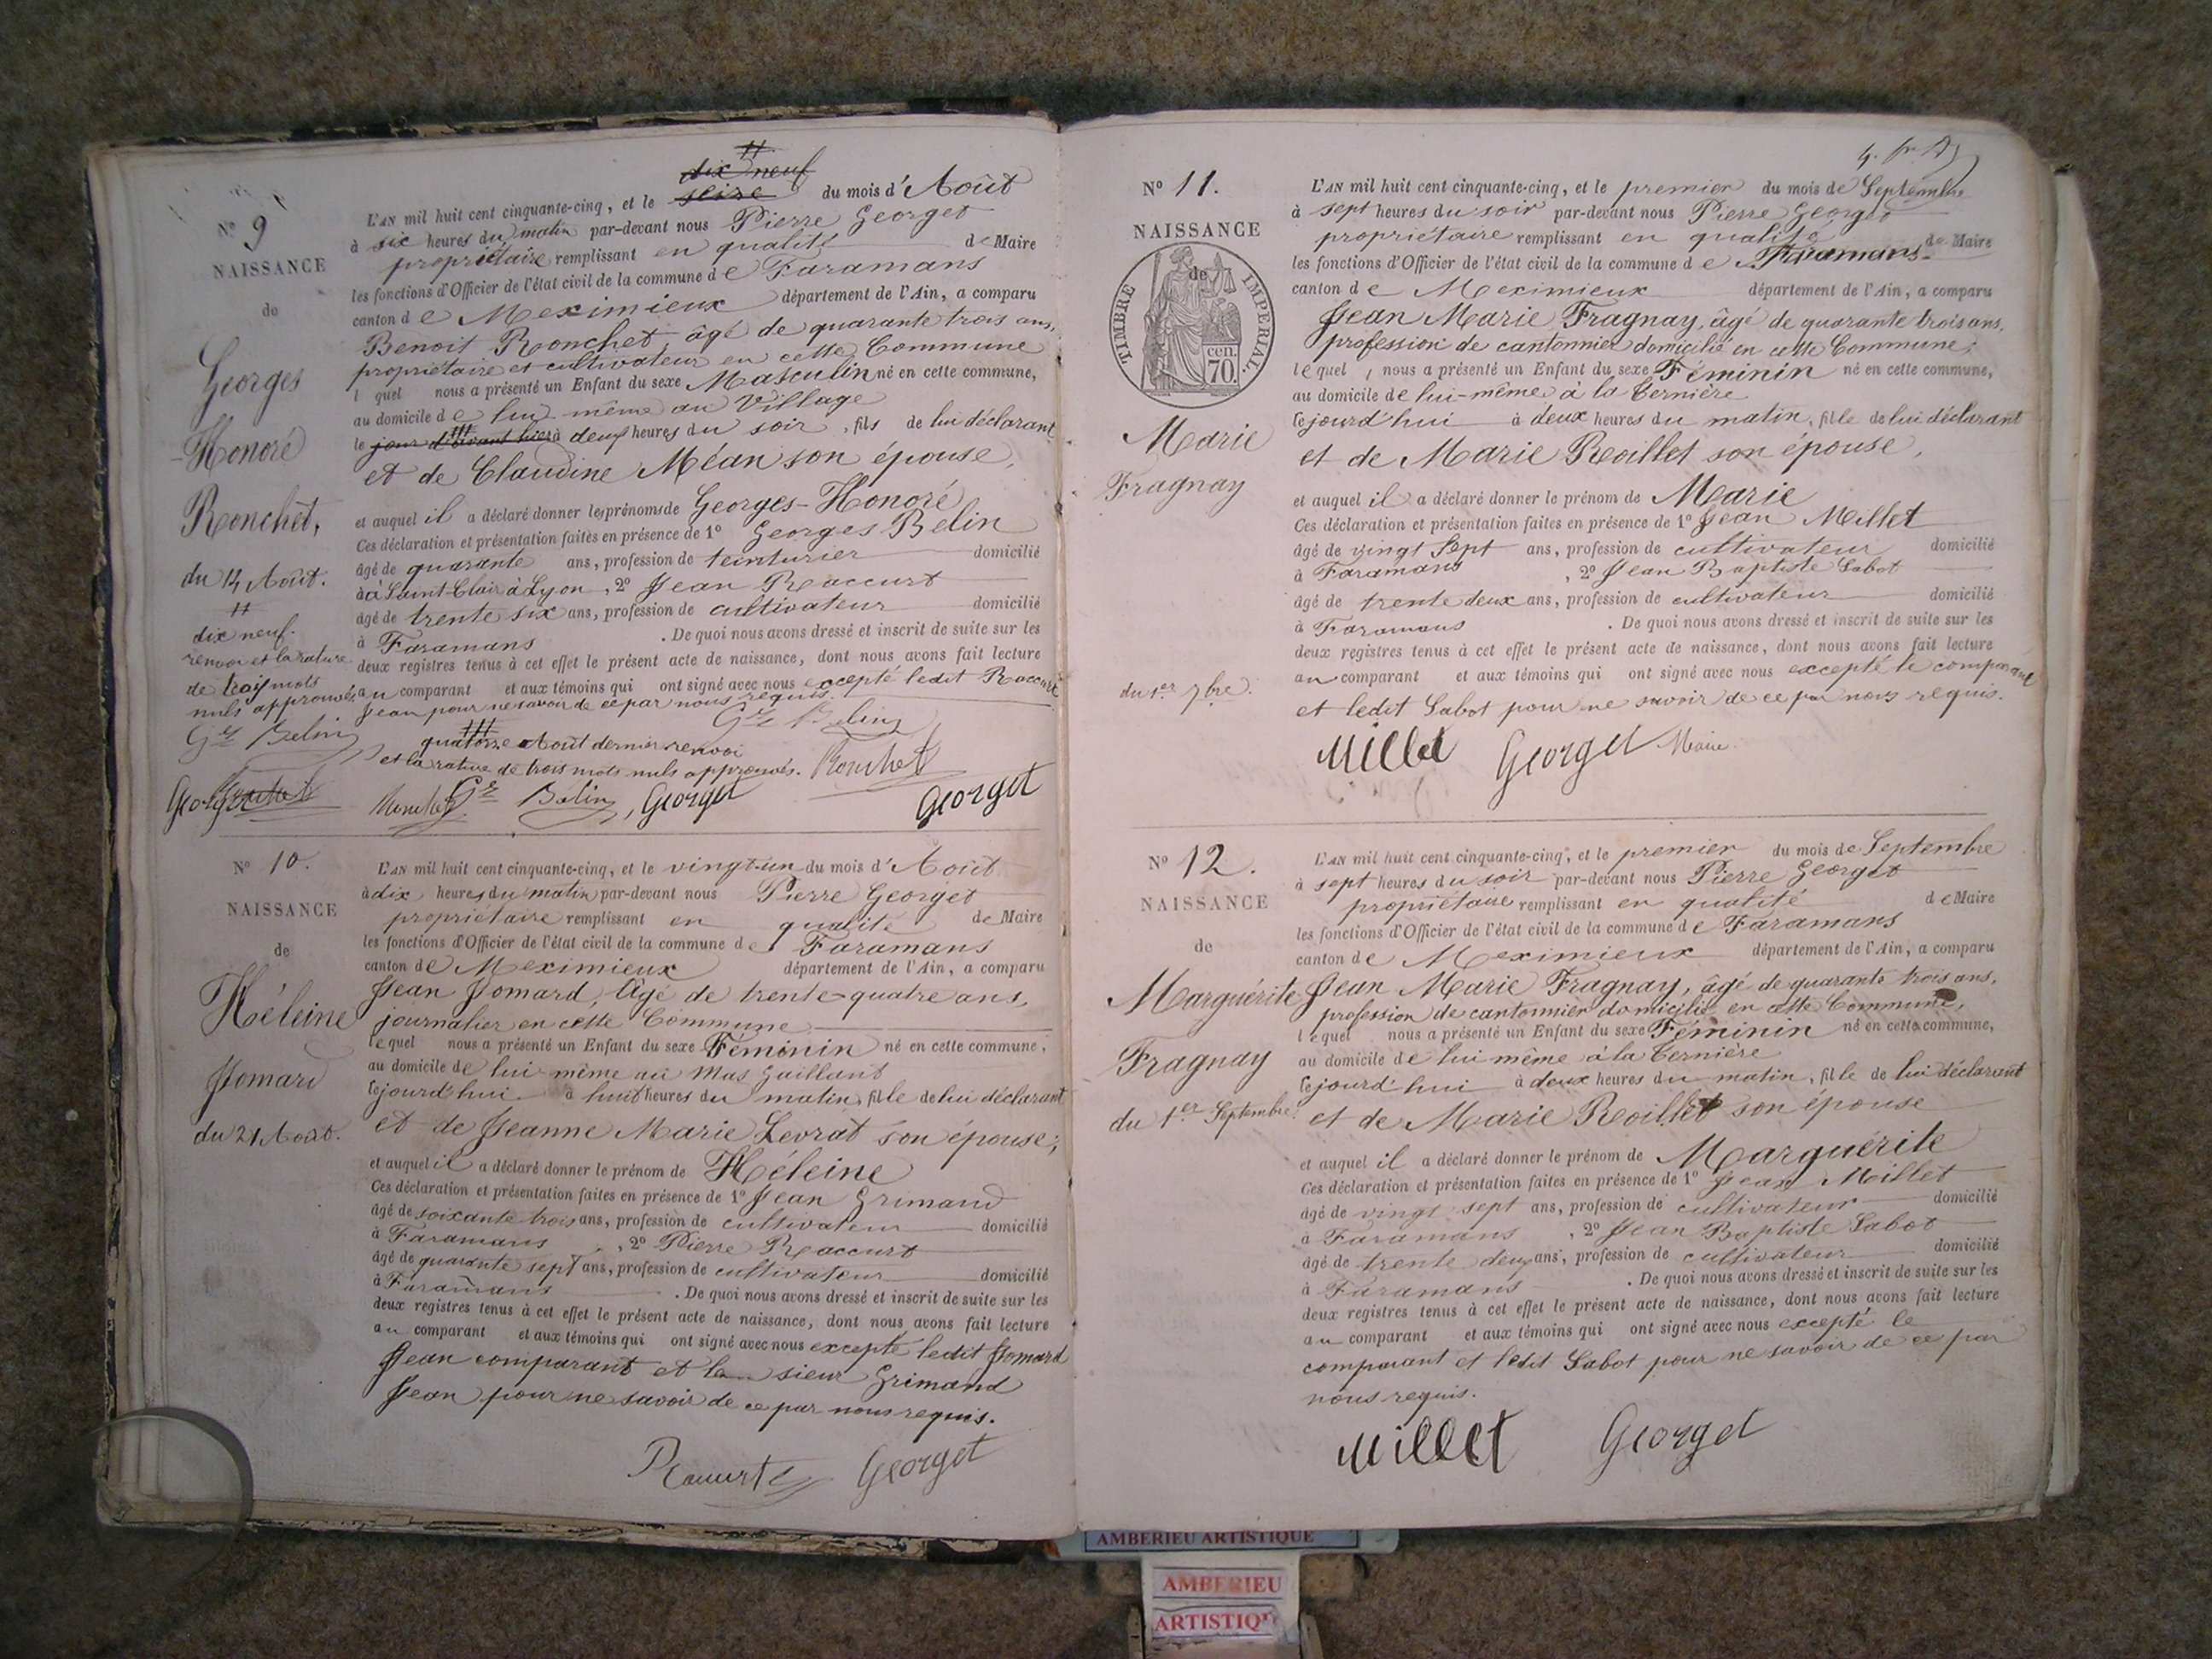 dix neuf
N° 9
L'AN mil huit cent cinquante-cinq, et le seize du mois d'Août
à six heures du matin par-devant nous Pierre Georget
propriétaire remplissant en qualité de Maire
les fonctions d'Officier de l'état civil de la commune de Faramans
canton de Meximieux département de l'Ain, a comparu
Benoit Ronchet, âgé de quarante trois ans,
propriétaire et cultivateur en cette Commune
lquel nous a présenté un Enfant du sexe Masculin né en cette commune,
au domicile de lui même au Village
le heures du soir, fils de lui déclarant
et de Claudine Méan son épouse,
et auquel il a déclaré donner les prénoms de Georges-Honoré
Ces déclaration et présentation faites en présence de 1° Georges Belin
âgé de quarante ans, profession de teinturier domicilié
à Saint-Clair à Lyon, 2° Jean Raccurt
âgé de trente six ans, profession de cultivateur domicilié
à Faramans . De quoi nous avons dressé et inscrit de suite sur les
deux registres tenus à cet effet le présent acte de naissance, dont nous avons fait lecture
au comparant et aux témoins qui ont signé avec nous excepté ledit Raccurt
Jean pour ne savoir de ce par nous requis.
quatorze Août dernier renvoi
et la rature de trois mots nuls approuvés. Ronchet
Belin, Georget
Georget
NAISSANCE
de
Georges
Honoré
Ronchet,
du 14 Août.
dix neuf.
renvoi et la rature
de trois mots
nuls approuvés
Belin
N° 10.
NAISSANCE
de
Héleine
Jomard
du 21 Août.
L'AN mil huit cent cinquante-cinq, et le vingt-un du mois d'Août
à dix heures du matin par-devant nous Pierre Georget
propriétaire remplissant en qualité de Maire
les fonctions d'Officier de l'état civil de la commune de Faramans
canton de Meximieux département de l'Ain, a comparu
Jean Jomard, âgé de trente-quatre ans,
journalier en cette Commune
lequel nous a présenté un Enfant du sexe Féminin né en cette commune,
au domicile de lui même au Mas Gaillant
cejourd'hui à huit heures du matin, fille de lui déclarant
et de Jeanne Marie Levrat son épouse;
et auquel il a déclaré donner le prénom de Héleine
Ces déclaration et présentation faites en présence de 1° Jean Grimand
âgé de soixante trois ans, profession de cultivateur domicilié
à Faramans, 2° Pierre Raccurt
âgé de quarante sept ans, profession de cultivateur domicilié
à Faramans . De quoi nous avons dressé et inscrit de suite sur les
deux registres tenus à cet effet le présent acte de naissance, dont nous avons fait lecture
au comparant et aux témoins qui ont signé avec nous excepté ledit Jomard
Jean comparant et le sieur Grimand
Jean pour ne savoir de ce par nous requis.
Raccurt Georget
N° 11.
NAISSANCE
de
TIMBRE IMPERIAL.
70. cen.
Marie
Fragnay
du 1er 7bre.
L'AN mil huit cent cinquante-cinq, et le premier du mois de Septembre
à sept heures du soir par-devant nous Pierre Georget
propriétaire remplissant en qualité de Maire
les fonctions d'Officier de l'état civil de la commune de Faramans
canton de Meximieux département de l'Ain, a comparu
Jean Marie Fragnay, âgé de quarante trois ans,
profession de cantonnier domicilié en cette Commune;
lequel, nous a présenté un Enfant du sexe Féminin né en cette commune,
au domicile de lui-même à la Bernière
cejourd'hui à deux heures du matin, fille de lui déclarant
et de Marie Roillet son épouse,
et auquel il a déclaré donner le prénom de Marie
Ces déclaration et présentation faites en présence de 1° Jean Millet
âgé de vingt sept ans, profession de cultivateur domicilié
à Faramans, 2° Jean Baptiste Sabot
âgé de trente deux ans, profession de cultivateur domicilié
à Faramans . De quoi nous avons dressé et inscrit de suite sur les
deux registres tenus à cet effet le présent acte de naissance, dont nous avons fait lecture
au comparant et aux témoins qui ont signé avec nous excepté le comparant
et ledit Sabot pour ne savoir de ce par nous requis.
Millet Georget Maire.
N° 12.
NAISSANCE
de
Marguérite
Fragnay
du 1er Septembre.
L'AN mil huit cent cinquante-cinq, et le premier du mois de Septembre
à sept heures du soir par-devant nous Pierre Georget
propriétaire remplissant en qualité de Maire
les fonctions d'Officier de l'état civil de la commune de Faramans
canton de Meximieux département de l'Ain, a comparu
Jean Marie Fragnay, âgé de quarante trois ans,
profession de cantonnier domicilié en cette Commune,
lequel nous a présenté un Enfant du sexe Féminin né en cette commune,
au domicile de lui même à la Bernière
cejourd'hui à deux heures du matin, fille de lui déclarant
et de Marie Roillet son épouse
et auquel il a déclaré donner le prénom de Marguérite
Ces déclaration et présentation faites en présence de 1° Jean Millet
âgé de vingt sept ans, profession de cultivateur domicilié
à Faramans, 2° Jean Baptiste Sabot
âgé de trente deux ans, profession de cultivateur domicilié
à Faramans . De quoi nous avons dressé et inscrit de suite sur les
deux registres tenus à cet effet le présent acte de naissance, dont nous avons fait lecture
au comparant et aux témoins qui ont signé avec nous excepté le
comparant et ledit Sabot pour ne savoir de ce par
nous requis.
Millet Georget
AMBERIEU ARTISTIQUE
AMBERIEU
ARTISTIQU